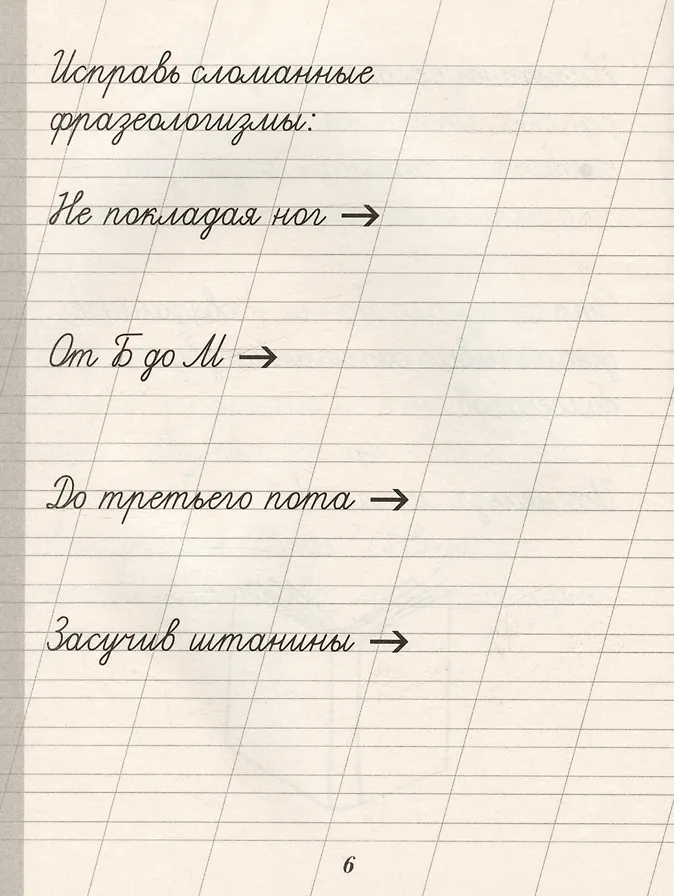 Исправь сломанные
фразеологизмы:
Не покладая ног →
От Б до М →
До третьего пота →
Засучив штанины →
6